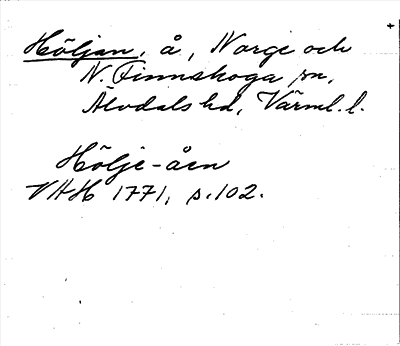 Höljan, å, Norge och
N. Finnskoga sn,
Älvdals hd, Värml. l.
Hölje-åen
VAH 1771, s. 102.